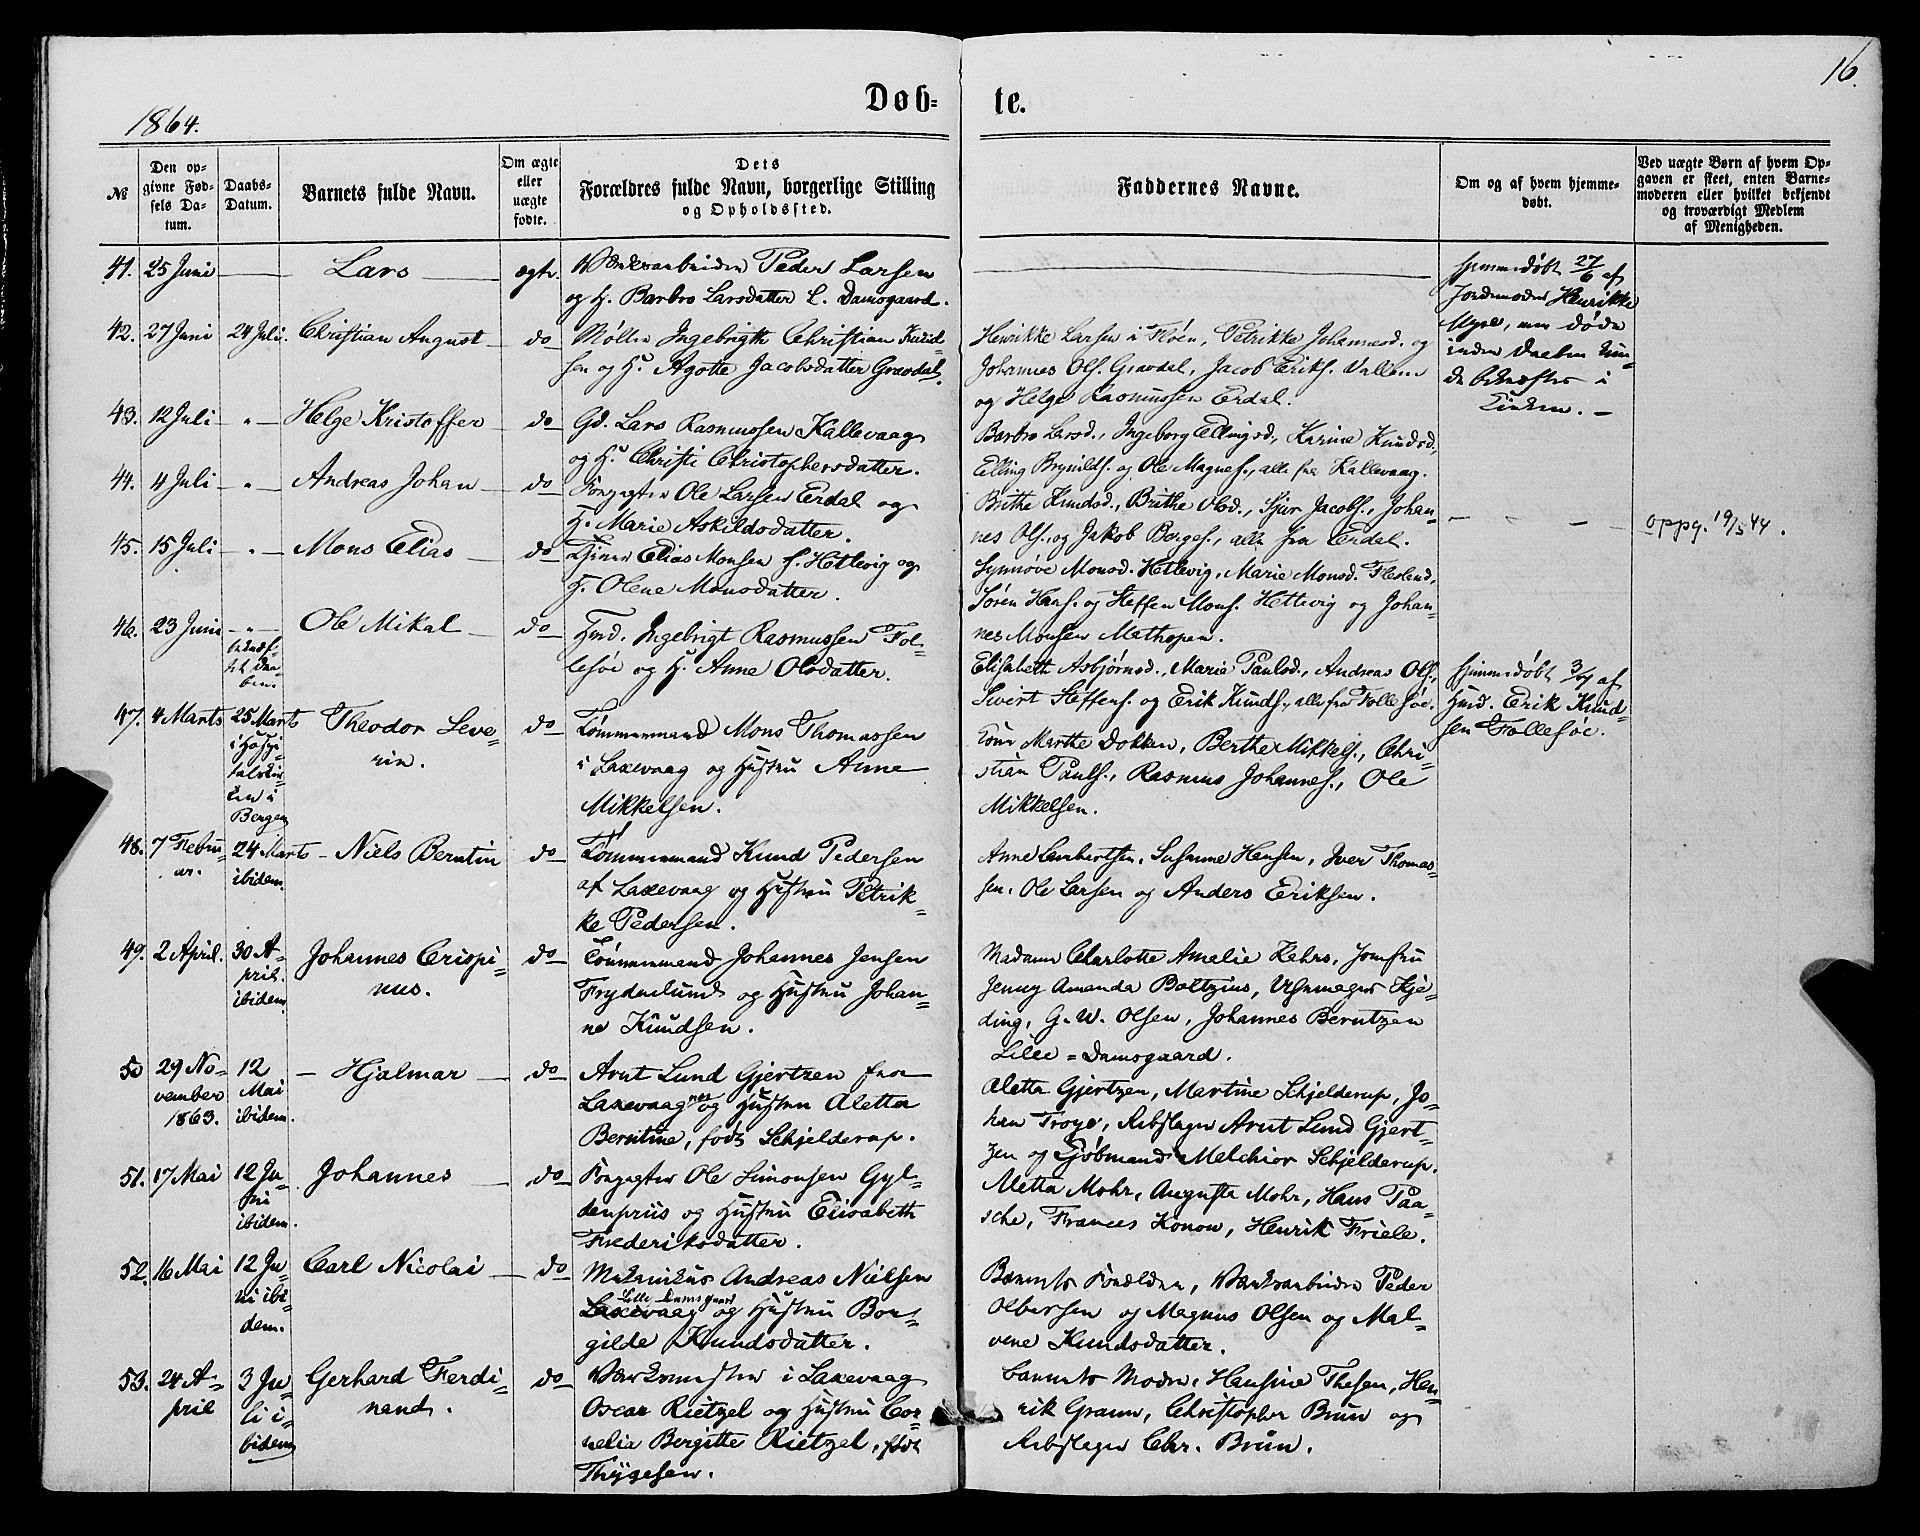 1864.
Døb-
te.
16.
№
Den op-
givne Fød-
sels Da-
tum.
Daabs-
Datum.
Barnets fulde Navn.
Om ægte
eller
uægte
fødte.
Dets
Forældres fulde Navn, borgerlige Stilling
og Opholdssted.
Faddernes Navne.
Om og af hvem hjemme-
døbt.
Ved uægte Børn af hvem Op-
gaven er skeet, enten Barne-
moderen eller hvilket bekjendt
og troværdigt Medlem
af Menigheden.
41. 25 Juni — Lars — ægte.
Værksarbeider Peder Larsen
og H. Barbro Larsdatter L. Damsgaard.
Hjemmedøbt 27/6 af
Jordemoder Henrikke
Myre, men døde
inden Daaben kun-
de bekræftes i
Kirken. —
42. 27 Juni 24 Juli. Christian August — do
Møller Ingebrigth Christian Knud-
sen og H. Agathe Jacobsdatter Gravdal.
Henrikke Larsen i Fløen, Petrikke Johannesd. og
Johannes Ols. Gravdal, Jacob Eriks. Vallem
og Helge Rasmussen Erdal.
43. 12 Juli — " — Helge Kristoffer — do
Gd. Lars Rasmussen Kallevaag
og H. Christi Christophersdatter.
Barbro Larsd., Ingeborg Ellingsd., Karine Knudsd.,
Elling Brynilds. og Ole Magnes., alle fra Kallevaag.
44. 4 Juli — " — Andreas Johan — do
Forpagter Ole Larsen Erdal og
H. Marie Askildsdatter.
Brithe Knudsd., Brithe Olsd., Sjur Jacobs., Johan-
nes Ols. og Jakob Borges., alle fra Erdal.
45. 15 Juli — " — Mons Elias — do
Tjener Elias Monsen f. Hetlevig og
H. Olene Monsdatter.
Synnøve Monsd. Hetlevig, Marie Monsd. Flesland,
Søren Hans. og Steffen Mons. Hetlevig og Johan-
nes Monsen Mathopen.
oppg. 19/5 44.
46. 23 Juni — " — Ole Mikal — do
bekræf-
tet Daa-
ben.
Hmd. Ingebrigt Rasmussen Fol-
lesøe og H. Anne Olsdatter.
Elisabeth Asbjørnsd., Marie Paulsd., Andreas Ols.,
Sivert Steffens. og Erik Knuds., alle fra Follesøe.
Hjemmedøbt 3/7 af
Hmd. Erik Knud-
sen Follesøe.
47. 4 Marts 25 Marts Theodor Seve-
rin. do
i Hospi-
talskir-
ken i
Bergen
Tømmermand Mons Thomassen
i Laxevaag og Hustru Anne
Mikkelsen.
Marthe Dokken, Berthe Mikkels., Chri-
stian Pauls., Rasmus Johannes., Ole
Mikkelsen.
48. 7 Febru-
ar. 24 Marts
ibidem. — Niels Berntin do
Tømmermand Knud Pedersen
af Laxevaag og Hustru Petrik-
ke Pedersen.
Anne Lambertsen, Susanne Hansen, Iver Thomas-
sen, Ole Larsen og Anders Eriksen.
49. 2 April. 30 A-
pril.
ibidem. Johannes Crispi-
nus. do
Tømmermand Johannes Jensen
Frydenlund og Hustru Johan-
ne Knudsen.
Madame Charlotte Amelie Kahrs, Jomfru
Jenny Amanda Boltzius, Uhrmager Kje-
ding, G. W. Olsen, Johannes Berntzen
Lille-Damsgaard.
50 29 No-
vember
1863. 12
Mai
ibidem. — Hjalmar — do
Arnt Lund Gjertzen fra
Laxevaagnes og Hustru Aletta
Berntine, født Schjelderup.
Aletta Gjertzen, Martine Schjelderup, Jo-
han Troye, Rebslager Arnt Lund Gjert-
zen og Kjøbmand Melchior Schjelderup.
51. 17 Mai 12 Ju-
ni
ibidem. Johannes — do
Forpagter Ole Simonsen Gyl-
denpriis og Hustru Elisabeth
Frederiksdatter.
Aletta Mohr, Augusta Mohr, Hans Paa-
sche, Frances Konow, Henrik Friele.
52. 16 Mai 12 Ju-
ni ibi-
dem. Carl Nicolai — do
Mekanikus Andreas Nielsen
Lille Damsgaard
Laxevaag og Hustru Bor-
gilde Knudsdatter.
Barnets Forældre, Værksarbeider Peder
Olbersen og Magnus Olsen og Mal-
vene Knudsdatter.
53. 24 A-
pril 3 Ju-
li i-
bidem Gerhard Ferdi-
nand. do
Værkmester i Laxevaag
Oscar Rietzel og Hustru Cor-
nelia Bergitte Rietzel, født
Thygesen.
Barnets Moder, Hansine Thesen, Hen-
rik Gran, Christopher Brun og
Rebslager Chr. Brun.